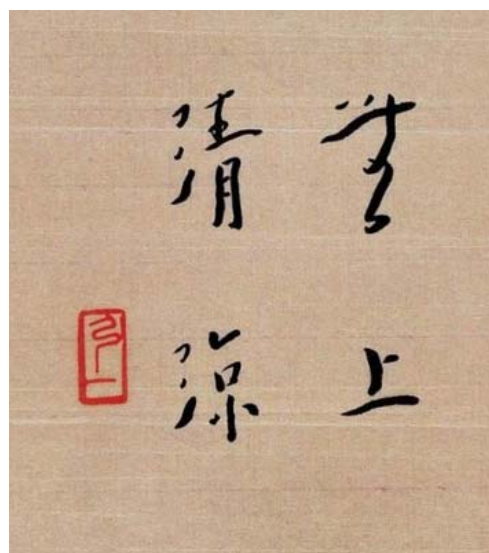 無上
清涼
弘一